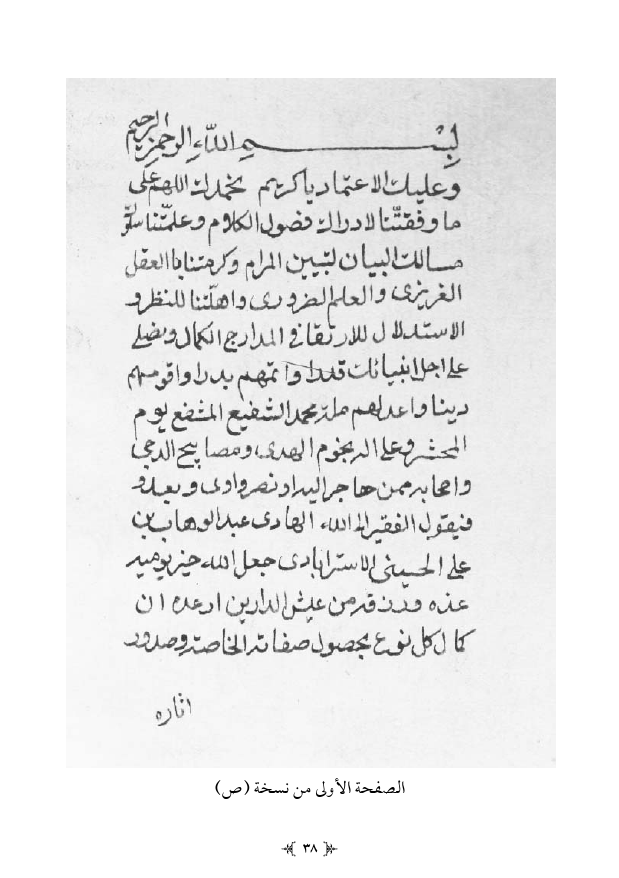 بسم الله الرحمن الرحيم
وعليك الاعتماد ياكريم نحمدك اللهم على
ما وفقتنا لادراك فصول الكلام وعلمتنا سلوك
مسالك البيان لتبيين المرام وكرمتنا باالعقل
الغريزى والعلم الضرورى واهلتنا للنظر و
الاستدلال للارتقا فى المدارج الكمال ونصلى
على اجل انبيائك قدرا واتمهم بدرا واقومهم
دينا واعدلهم ملة محمد الشفيع المشفع يوم
المحشر وعلى اله نجوم الهدى ومصابيح الدجى
واصحابه ممن هاجر اليه او نصر واوى وبعد و
فيقول الفقير الى الله الهادى عبد الوهاب بن
على الحسينى الاسترابادى جعل الله خير يوميه
غده ورزقه من عيش الدارين ارغده ان
كمال كل نوع بحصول صفاته الخاصة وصدور
اثاره
الصفحة الأولى من نسخة (ص)
٣٨